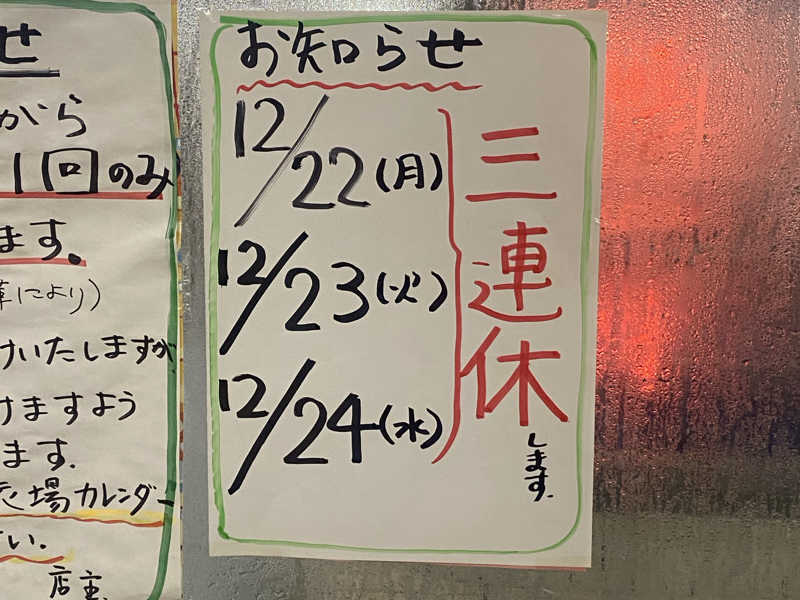 お知らせ
12/22(月)
12/23(火)
12/24(水)
三連休
します.
せ
から
1回のみ
ます。
革により)
けいたしますが
けますよう
ます.
広場カレンダー
い.
店主.